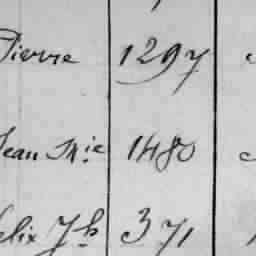 Pierre 1297
Jean M.ie 1480
elix Jh 371